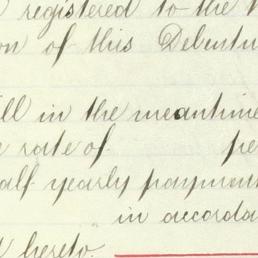 registered to the
on of this Debentu
ill in the meantime
rate of pe
alf yearly payment
in accorda
hereto.